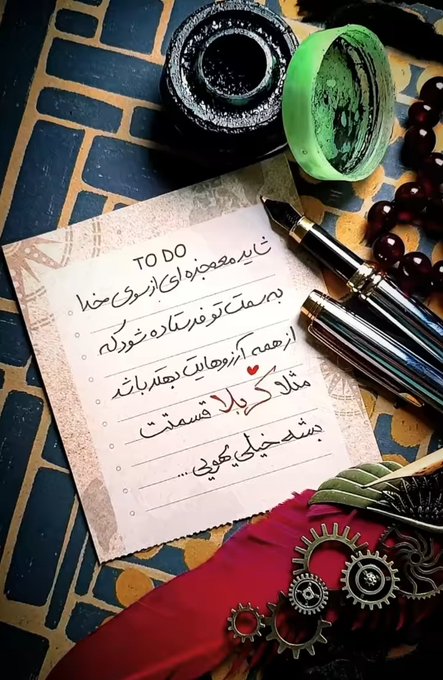 TO DO
شاید معجزه ای از سوی خدا
به سمت تو فرستاده شود که
از همه آرزوهایت بهتر باشد
مثلا کربلا قسمتت
بشه خیلی یهویی...